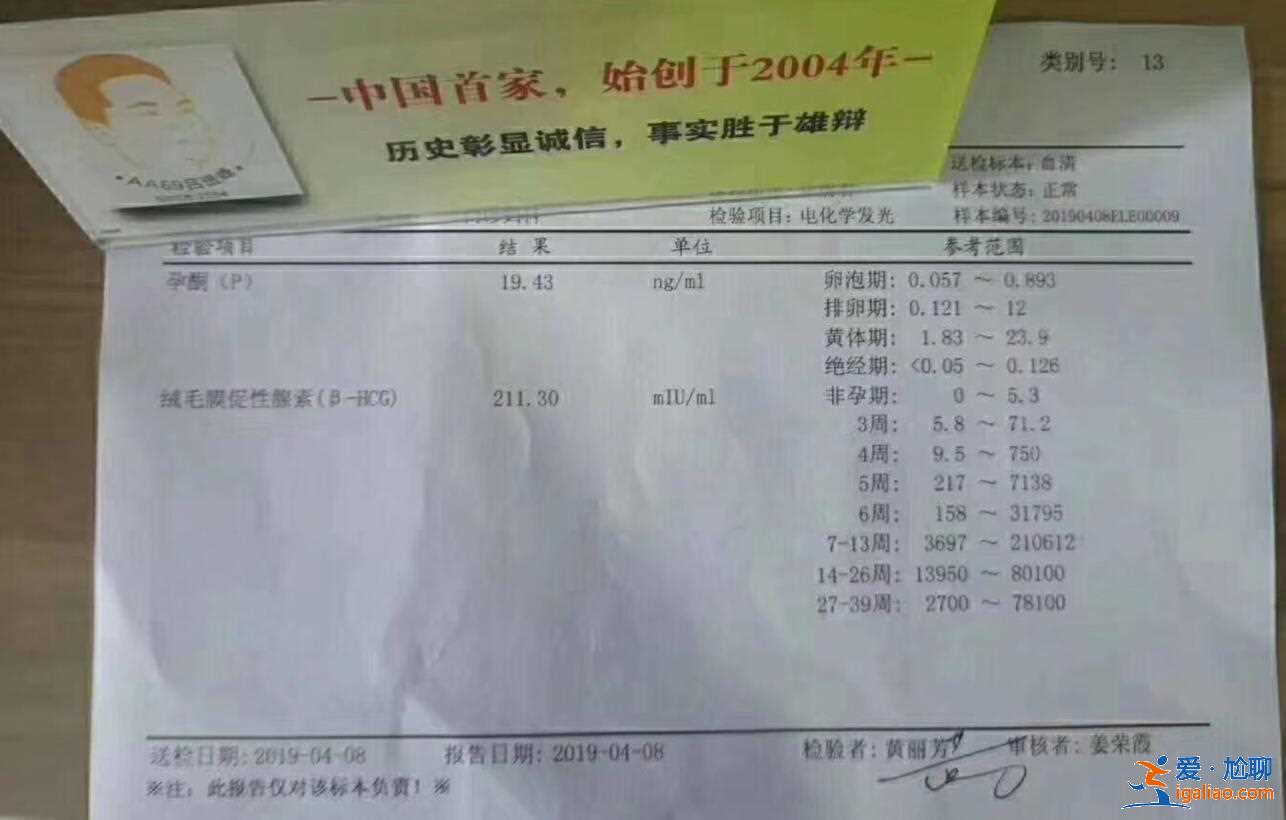 -中国首家，始创于2004年-
历史彰显诚信，事实胜于雄辩
类别号： 13
送检标本：血清
样本状态：正常
检验项目：电化学发光 样本编号：20190408ELE00009
检验项目 结 果 单位 参考范围
孕酮（P） 19.43 ng/ml 卵泡期：0.057 ～ 0.893
排卵期：0.121 ～ 12
黄体期： 1.83 ～ 23.9
绝经期：<0.05 ～ 0.126
绒毛膜促性腺素(β-HCG) 211.30 mIU/ml 非孕期： 0 ～ 5.3
3周： 5.8 ～ 71.2
4周： 9.5 ～ 750
5周： 217 ～ 7138
6周： 158 ～ 31795
7-13周： 3697 ～ 210612
14-26周：13950 ～ 80100
27-39周： 2700 ～ 78100
送检日期：2019-04-08 报告日期：2019-04-08 检验者：黄丽芳 审核者：姜荣霞
※注：此报告仅对该标本负责！※
爱·尬聊
igaliao.com